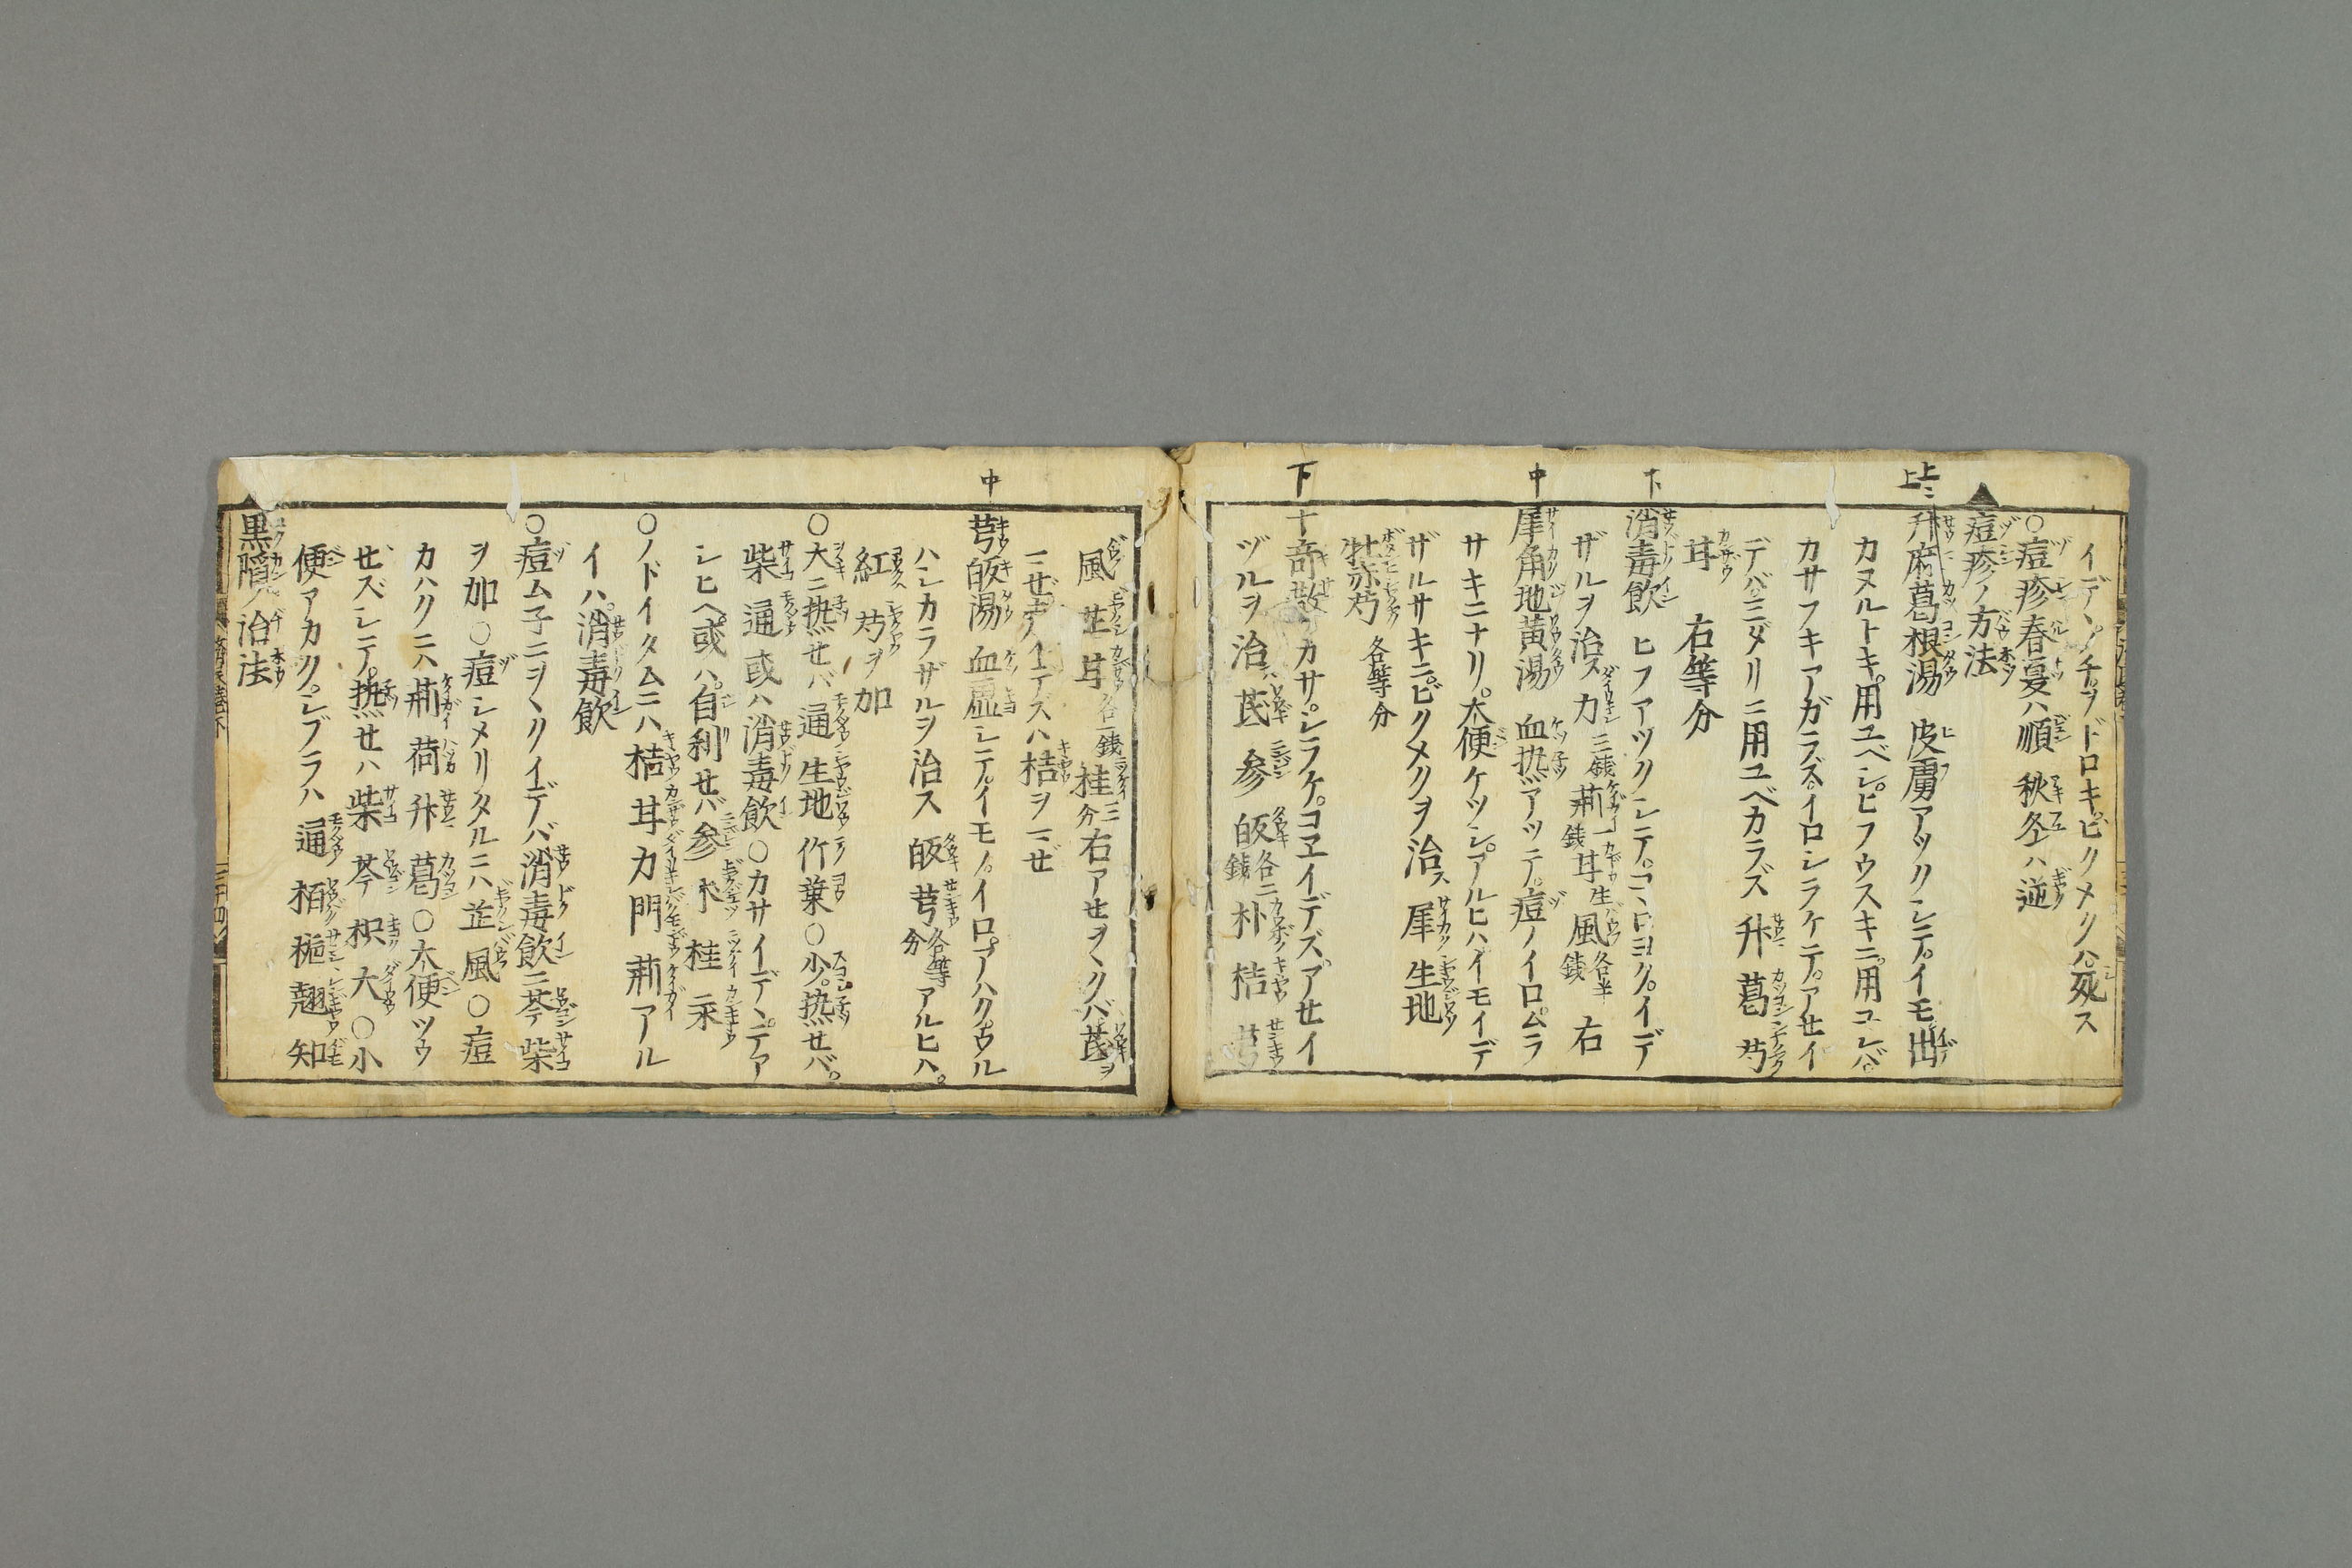 イデヽ。チ。ヲドロキ。ビクメクハ。死ス
○痘疹春夏ハ順 秋冬ハ逆
痘疹ノ方法
上上ニ
升麻葛根湯 皮膚アツクシテ。イモ。出
カヌルトキ。用ユベシ。ヒフウスキニ。用ユレバ
カサフキアガラズ。イロシラケテ。アセイ
デバ。ミダリニ用ユベカラズ 升 葛 芍
甘 右等分
下
消毒飲 ヒフアツクシテ。コヽロヨク。イデ
ザルヲ治ス 力三錢 荊一錢 甘生 風各半錢 右
中
犀角地黄湯 血热アツテ。痘ノイロ。ムラ
サキニナリ。大便ケツシ。アルヒハ。イモイデ
ザルサキニ。ビクメクヲ治ス 犀 生地
牡 赤芍 各等分
下
十奇散 カサ。シラケ。コヱイデズ。アセイ
ヅルヲ治ス 芪 参 皈各二錢 朴 桔 芎
風 芷 甘各一錢 桂三分 右アセヲヽクバ芪ヲ
ニセ゚。声イデズハ桔ヲニセ゚
中
芎皈湯 血虚シテ。イモノ。イロ。アハク。ウル
ハシカラザルヲ治ス 皈 芎各等分 アルヒハ。
紅 芍ヲ加
○大ニ热セバ 通 生地 竹葉○少。热セバ。
柴 通 或ハ消毒飲○カサイデヽ。デア
シヒヘ或ハ。自利セバ 参 朮 桂 采
○ノドイタムニハ 桔 甘 力 門 荊アル
イハ。消毒飲
○痘ムネニヲヽクイデバ。消毒飲ニ芩 柴
ヲ加○痘シメリタルニハ芷 風○痘
カハクニハ荊 荷 升 葛○大便ツウ
セズシテ。热セハ 柴 芩 枳 大○小
便アカク。シブラハ 通 栢 梔 翹 知
黒陥ノ治法